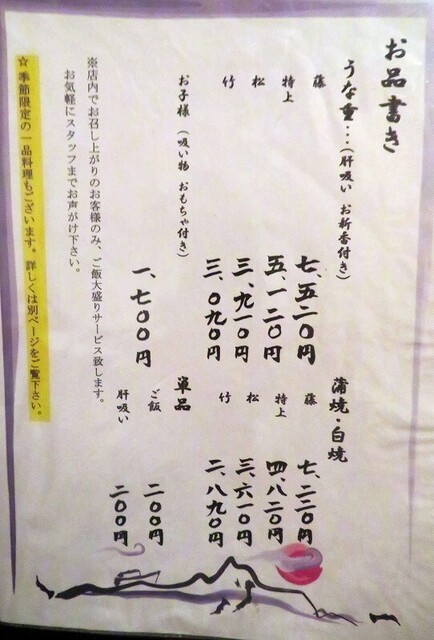 お品書き
うな重…（肝吸い お新香付き）
藤 七、五二〇円
特上 五、一二〇円
松 三、九一〇円
竹 三、〇九〇円
お子様（吸い物 おもちゃ付き） 一、七〇〇円
蒲焼・白焼
藤 七、二二〇円
特上 四、八二〇円
松 三、六一〇円
竹 二、八九〇円
単品
ご飯 二〇〇円
肝吸い 二〇〇円
※店内でお召し上がりのお客様のみ、ご飯大盛りサービス致します。
お気軽にスタッフまでお声がけ下さい。
☆季節限定の一品料理もございます。詳しくは別ページをご覧下さい。